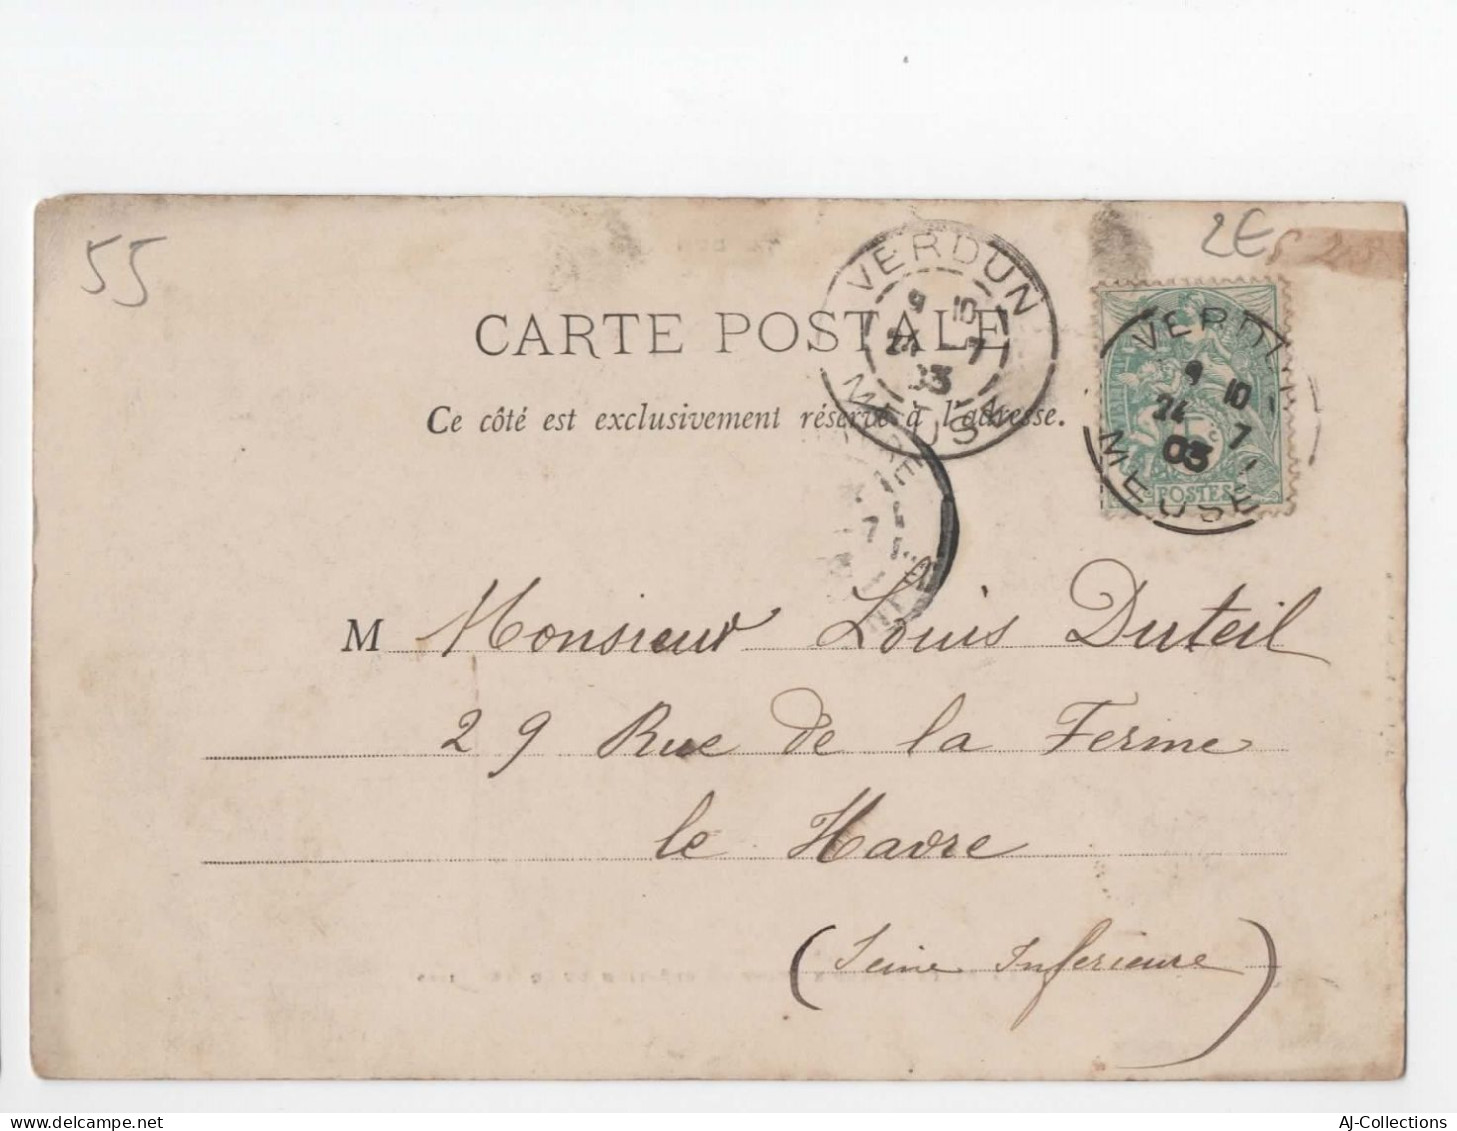 55
2E
VERDUN
9 10
24 7
03
MEUSE
VERDUN
9 10
24 7
03
MEUSE
5 c
POSTES
CARTE POSTALE
Ce côté est exclusivement réservé à l'adresse.
7
M Monsieur Louis Duteil
29 Rue de la Ferme
le Havre
(Seine Inférieure)
AJ-Collections